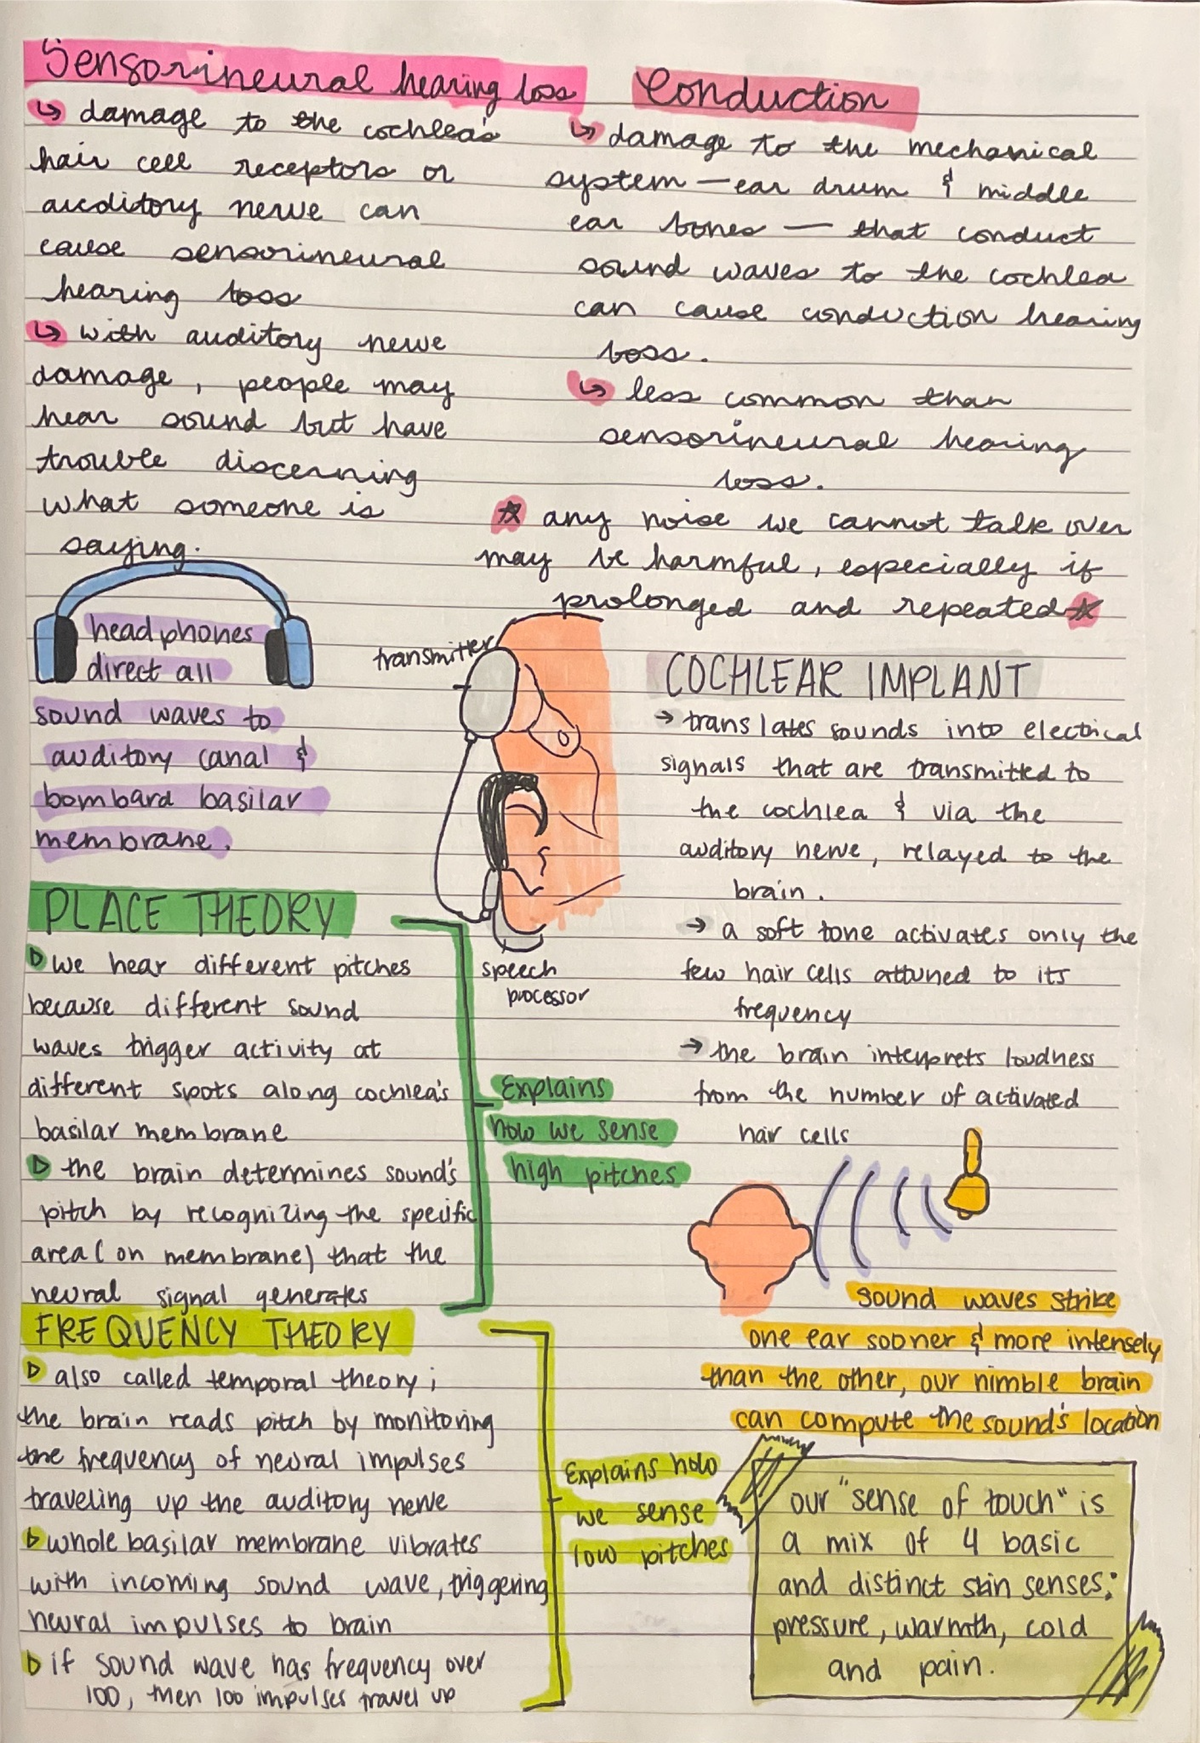 Sensorineural hearing loss
↳ damage to the cochlea's
hair cell receptors or
auditory nerve can
cause sensorineural
hearing loss
↳ with auditory nerve
damage, people may
hear sound but have
trouble discerning
what someone is
saying.
Conduction
↳ damage to the mechanical
system — ear drum & middle
ear bones — that conduct
sound waves to the cochlea
can cause conduction hearing
loss.
↳ less common than
sensorineural hearing
loss.
☆ any noise we cannot talk over
may be harmful, especially if
prolonged and repeated ☆
headphones
direct all
sound waves to
auditory canal &
bombard basilar
membrane.
transmitter
speech
processor
COCHLEAR IMPLANT
→ translates sounds into electrical
signals that are transmitted to
the cochlea & via the
auditory nerve, relayed to the
brain.
→ a soft tone activates only the
few hair cells attuned to its
frequency
→ the brain interprets loudness
from the number of activated
hair cells
PLACE THEORY
▷ we hear different pitches
because different sound
waves trigger activity at
different spots along cochlea's
basilar membrane
▷ the brain determines sound's
pitch by recognizing the specific
area (on membrane) that the
neural signal generates
Explains
how we sense
high pitches
sound waves strike
one ear sooner & more intensely
than the other, our nimble brain
can compute the sound's location
FREQUENCY THEORY
▷ also called temporal theory;
the brain reads pitch by monitoring
the frequency of neural impulses
traveling up the auditory nerve
▷ whole basilar membrane vibrates
with incoming sound wave, triggering
neural impulses to brain
▷ if sound wave has frequency over
100, then 100 impulses travel up
Explains how
we sense
low pitches
our "sense of touch" is
a mix of 4 basic
and distinct skin senses:
pressure, warmth, cold
and pain.